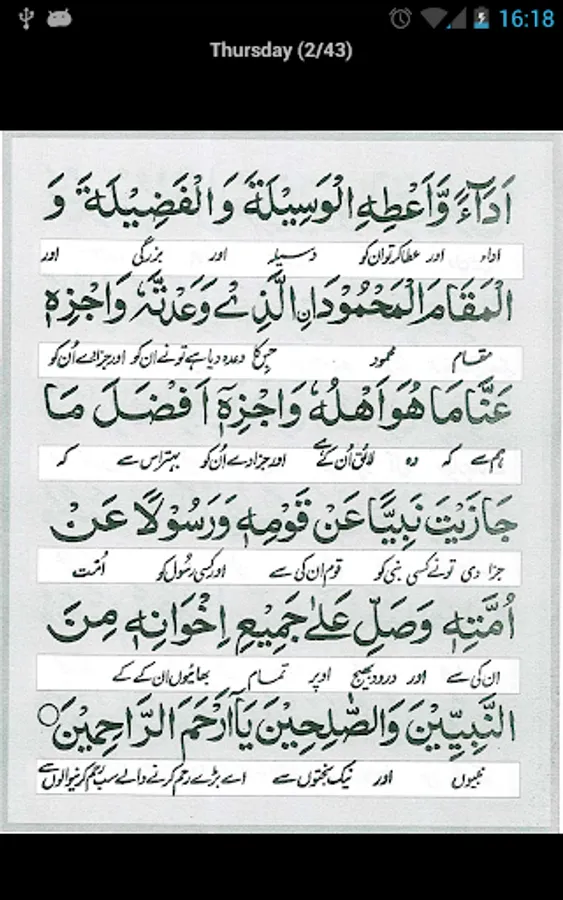 16:18
Thursday (2/43)
اَدَآءً وَّاَعْطِهِ الْوَسِيْلَةَ وَالْفَضِيْلَةَ وَ
اداء اور عطا کر تو ان کو وسیلہ اور بزرگی اور
الْمَقَامَ الْمَحْمُوْدَانِ الَّذِیْ وَعَدْتَّهٗ وَاجْزِهٖ
مقام محمود جس کا وعدہ دیا ہے تو نے ان کو اور جزا دے اُن کو
عَنَّا مَا هُوَ اَهْلُهٗ وَاجْزِهٖٓ اَفْضَلَ مَا
ہم سے کہ وہ لائق اُن کے ہے اور جزا دے اُن کو بہتر اس سے کہ
جَازَيْتَ نَبِيًّا عَنْ قَوْمِهٖ وَرَسُوْلًا عَنْ
جزا دی تو نے کسی نبی کو قوم ان کی سے اور کسی رسُول کو اُمّت
اُمَّتِهٖ وَصَلِّ عَلٰى جَمِيْعِ اِخْوَانِهٖ مِنَ
ان کی سے اور درود بھیج اوپر تمام بھائیوں ان کے کے
النَّبِيِّيْنَ وَالصّٰلِحِيْنَ يَآ اَرْحَمَ الرَّاحِمِيْنَ○
نبیوں اور نیک بختوں سے اے بڑے رحم کرنے والے سب رحم کرنیوالوں سے